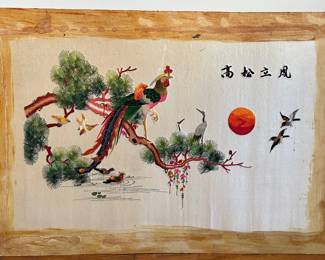 高松立凤